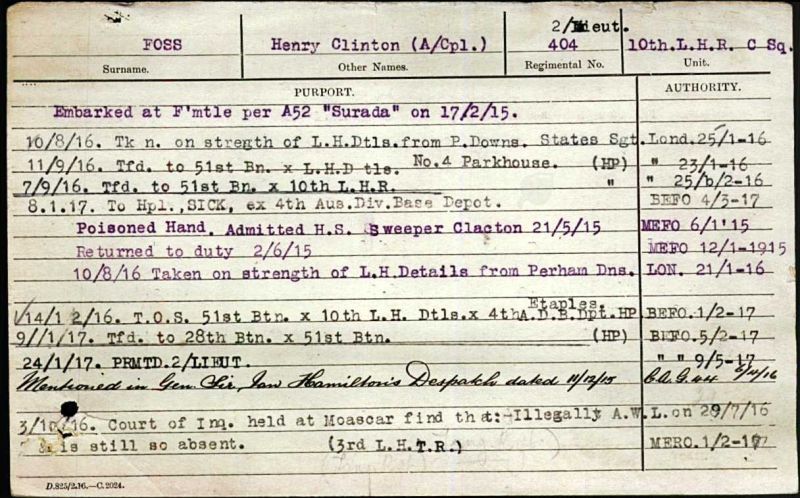 2/Lieut.
FOSS Henry Clinton (A/Cpl.) 404 10th.L.H.R. C Sq.
Surname. Other Names. Regimental No. Unit.
PURPORT. AUTHORITY.
Embarked at F'mtle per A52 "Surada" on 17/2/15.
10/8/16. Tk n. on stregth of L.H.Dtls.from P.Downs. States Sgt. Lond.25/1-16
11/9/16. Tfd. to 51st Bn. x L.H.D tls. No.4 Parkhouse. (HP) " 23/1-16
7/9/16. Tfd. to 51st Bn. x 10th L.H.R. " " 25/b/2-16
8.1.17. To Hpl.,SICK, ex 4th Aus.Div.Base Depot. BEFO 4/3-17
Poisoned Hand. Admitted H.S. Sweeper Clacton 21/5/15 MEFO 6/1'15
Returned to duty 2/6/15 MEFO 12/1-1915
10/8/16 Taken on strength of L.H.Details from Perham Dns. LON. 21/1-16
Etaples.
14/1 2/16. T.O.S. 51st Btn. x 10th L.H. Dtls.x 4thA.D.B.Dpt.HP BEFO.1/2-17
9//1/17. Tfd. to 28th Btn. x 51st Btn. (HP) BEFO.5/2-17
24/1/17. PRMTD.2/LIEUT. " " 9/5-17
Mentioned in Gen Sir, Ian Hamilton's Despatch dated 11/12/15 C.A.G.44
3/10/16. Court of Inq. held at Moascar find that:-Illegally A.W.L.on 29/7/16
& is still so absent. (3rd L.H.T.R.) MERO.1/2-17
D.825/2.16.—C.2024.